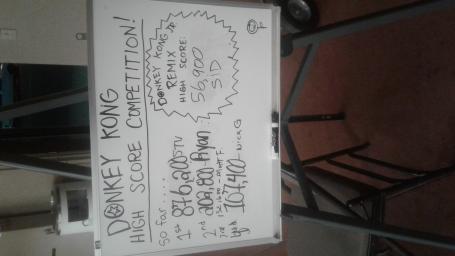 DONKEY KONG
HIGH SCORE COMPETITION!
DONKEY KONG JR.
REMIX
HIGH SCORE:
56,900
SID
So far.....
1st 876,200 DTV
2nd 204,800 Ryan
3rd
107,400